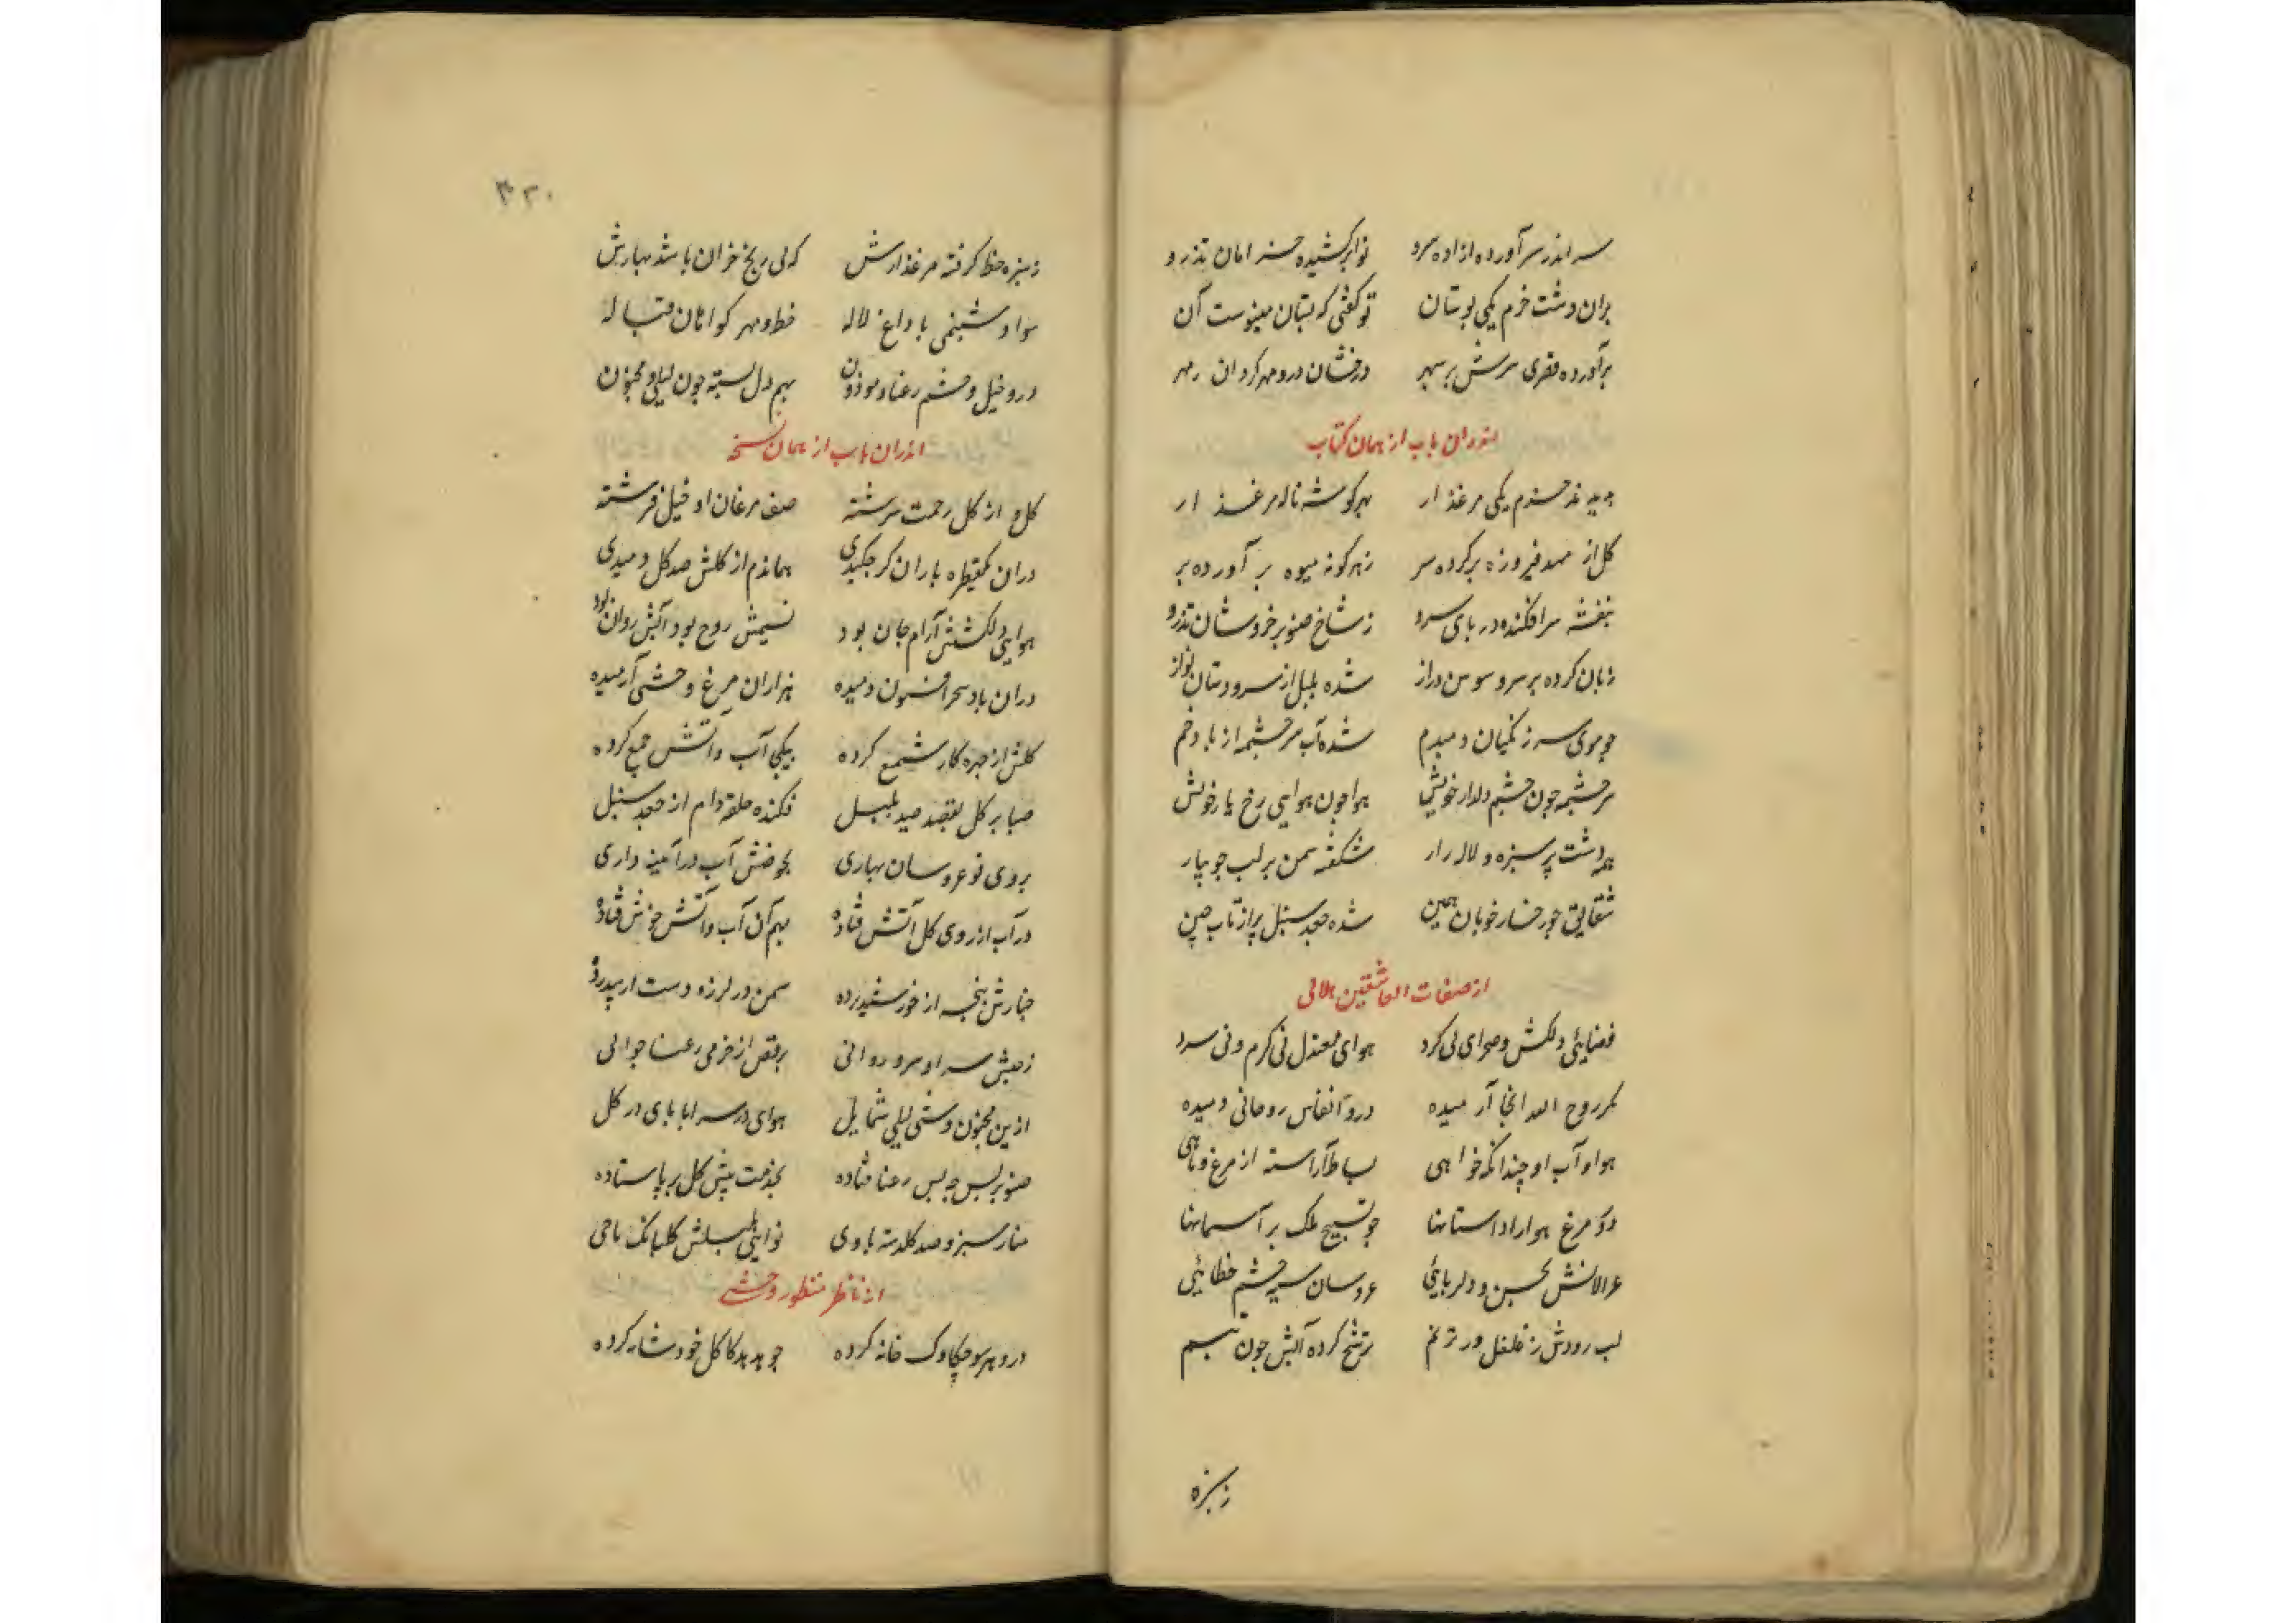 سر اندر سر آورده ازاده سرو نوا برکشیده خرامان تذرو
بران دشت خرم یکی بوستان تو گفتی که بستان مینوست آن
برآورده قصری سرش بر سپهر درخشان درو مهر کردان
اندران باب از همان کتاب
خرم یکی مرغزار بهر کوشه ناله مرغ زار
کل از مهد فیروزه برکرده سر زهر کونه میوه بر آورده بر
بنفشه سر افکنده در بای سرو ز شاخ صنوبر خروشان تذرو
زبان کرده بر سرو سوسن دراز شده بلبل از سرو دستان نواز
جو موی سر زنکیان دمبدم شده آب سرجشمه از باد خم
سرجشمه جون جشم دلدار خویش هوا جون هوایی رخ یار خویش
همه دشت پر سبزه و لاله زار شکفته سمن بر لب جویبار
شقایق جو رخسار خوبان جین شده جعد سنبل پر از تاب جین
از صفات العاشقین هلالی
فضایئی دلکش و صحرای بی کرد هوای معتدل نی کرم و نی سرد
مکر روح الله انجا آرمیده درو انفاس روحانی دمیده
هوا و آب او جندانکه خواهی بساط آراسته از مرغ و ماهی
درو مرغ هوا را داستانها جو تسبیح ملک بر آسمانها
غزالانش بحسن و دلربایئی عروسان سیه جشم خطایئی
لب رودش ز غلغل در ترنم ترشح کرده آبش جون تبسم
ز سبزه
۴۳۰
ز سبزه خط کرفته مرغذارش که بی رنج خزان باشد بهارش
سواد شبنمی با داغ لاله خط و مهر کواهان قباله
درو خیل و حشم رعنا و موذون بهم دل بسته جون لیلی و مجنون
اندران باب از همان نسخه
کل او از کل رحمت سرشته صف مرغان او خیل فرشته
دران یکقطره باران کر جکیدی هماندم از کلش صد کل دمیدی
هوایی دلکشش آرام جان بود نسیمش روح بود آبش روان بود
دران باد سحر افسون دمیده هزاران مرغ وحشی آرمیده
کلش از جهره کار شمع کرده بیکجا آب و آتش جمع کرده
صبا بر کل بقصد صید بلبل فکنده حلقه دام از جعد سنبل
بروی نو عروسان بهاری بحوضش آب در آئینه داری
در آب از روی کل آتش فتاده بهم آن آب و آتش خوش فتاده
جنارش پنجه از خورشید برده سمن در لرزه دست از بید برده
ز جنبش سر او سرو روانی برقص از خرمی رعنا جوانی
ازین مجنون وشی لیلی شمایل هوای در سر اما بای در کل
صنوبر بس جو بس رعنا فتاده بخدمت پیش کل بر پا ستاده
منار سبز و صد کلدسته با وی نوایئی بلبلش کلبانک یا حی
از ناظر منظور وحشی
درو هر سو جکاوک خانه کرده جو هدهد کاکل خود شانه کرده